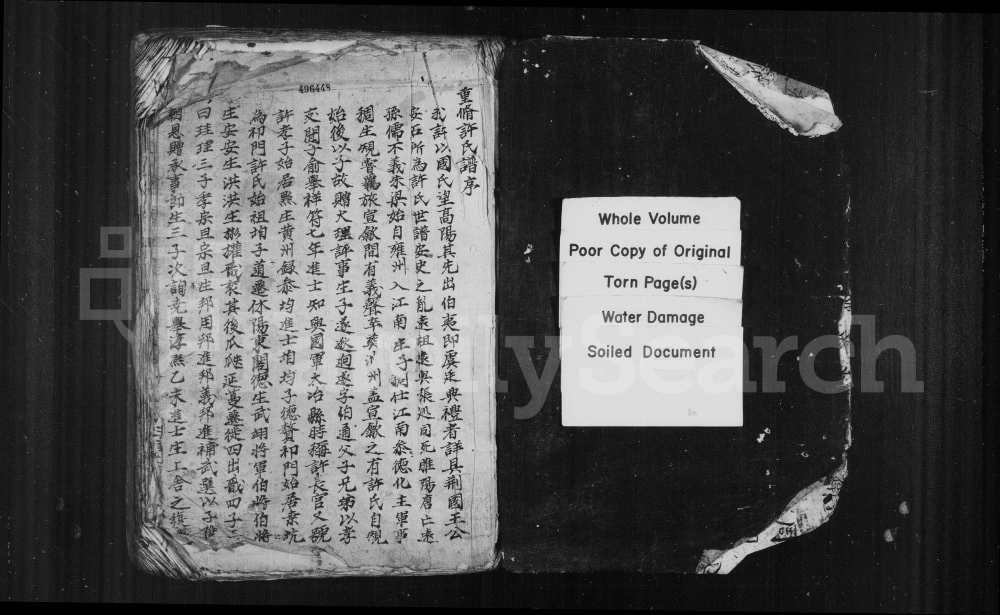 496448
重脩許氏譜序
我許以國氏望高陽其先出伯夷即虞廷典禮者詳具荆國王公
安石所為許氏世譜安史之亂遠祖眾與張处同死雎陽唐亡遠
孫儒不義朱梁始自雍州入江南生子仕江南叅德化主軍事
稠生規嘗羈旅宣歙間有義聲卒葬州盖宣歙之有許氏自規
始後以子故贈大理評事生子遂逖迥遂字伯通父子兄弟以孝
交聞子俞舉祥符七年進士知興國軍大冶縣時稱許長官又號
許孝子始居黟生黄州録叅均進士均子德賢祁門始居
為祁門許氏始祖均子遷休陽東閣德生武翊將軍伯將伯將
生安安生洪洪生其後瓜瓞延蔓遷徙四出四子
曰珪理三子孝宗旦宗旦生邦用邦進邦義邦進補武選以子
恩贈承事郎生三子次詢克舉淳熙乙未進士生上舍之
Whole Volume
Poor Copy of Original
Torn Page(s)
Water Damage
Soiled Document
FamilySearch